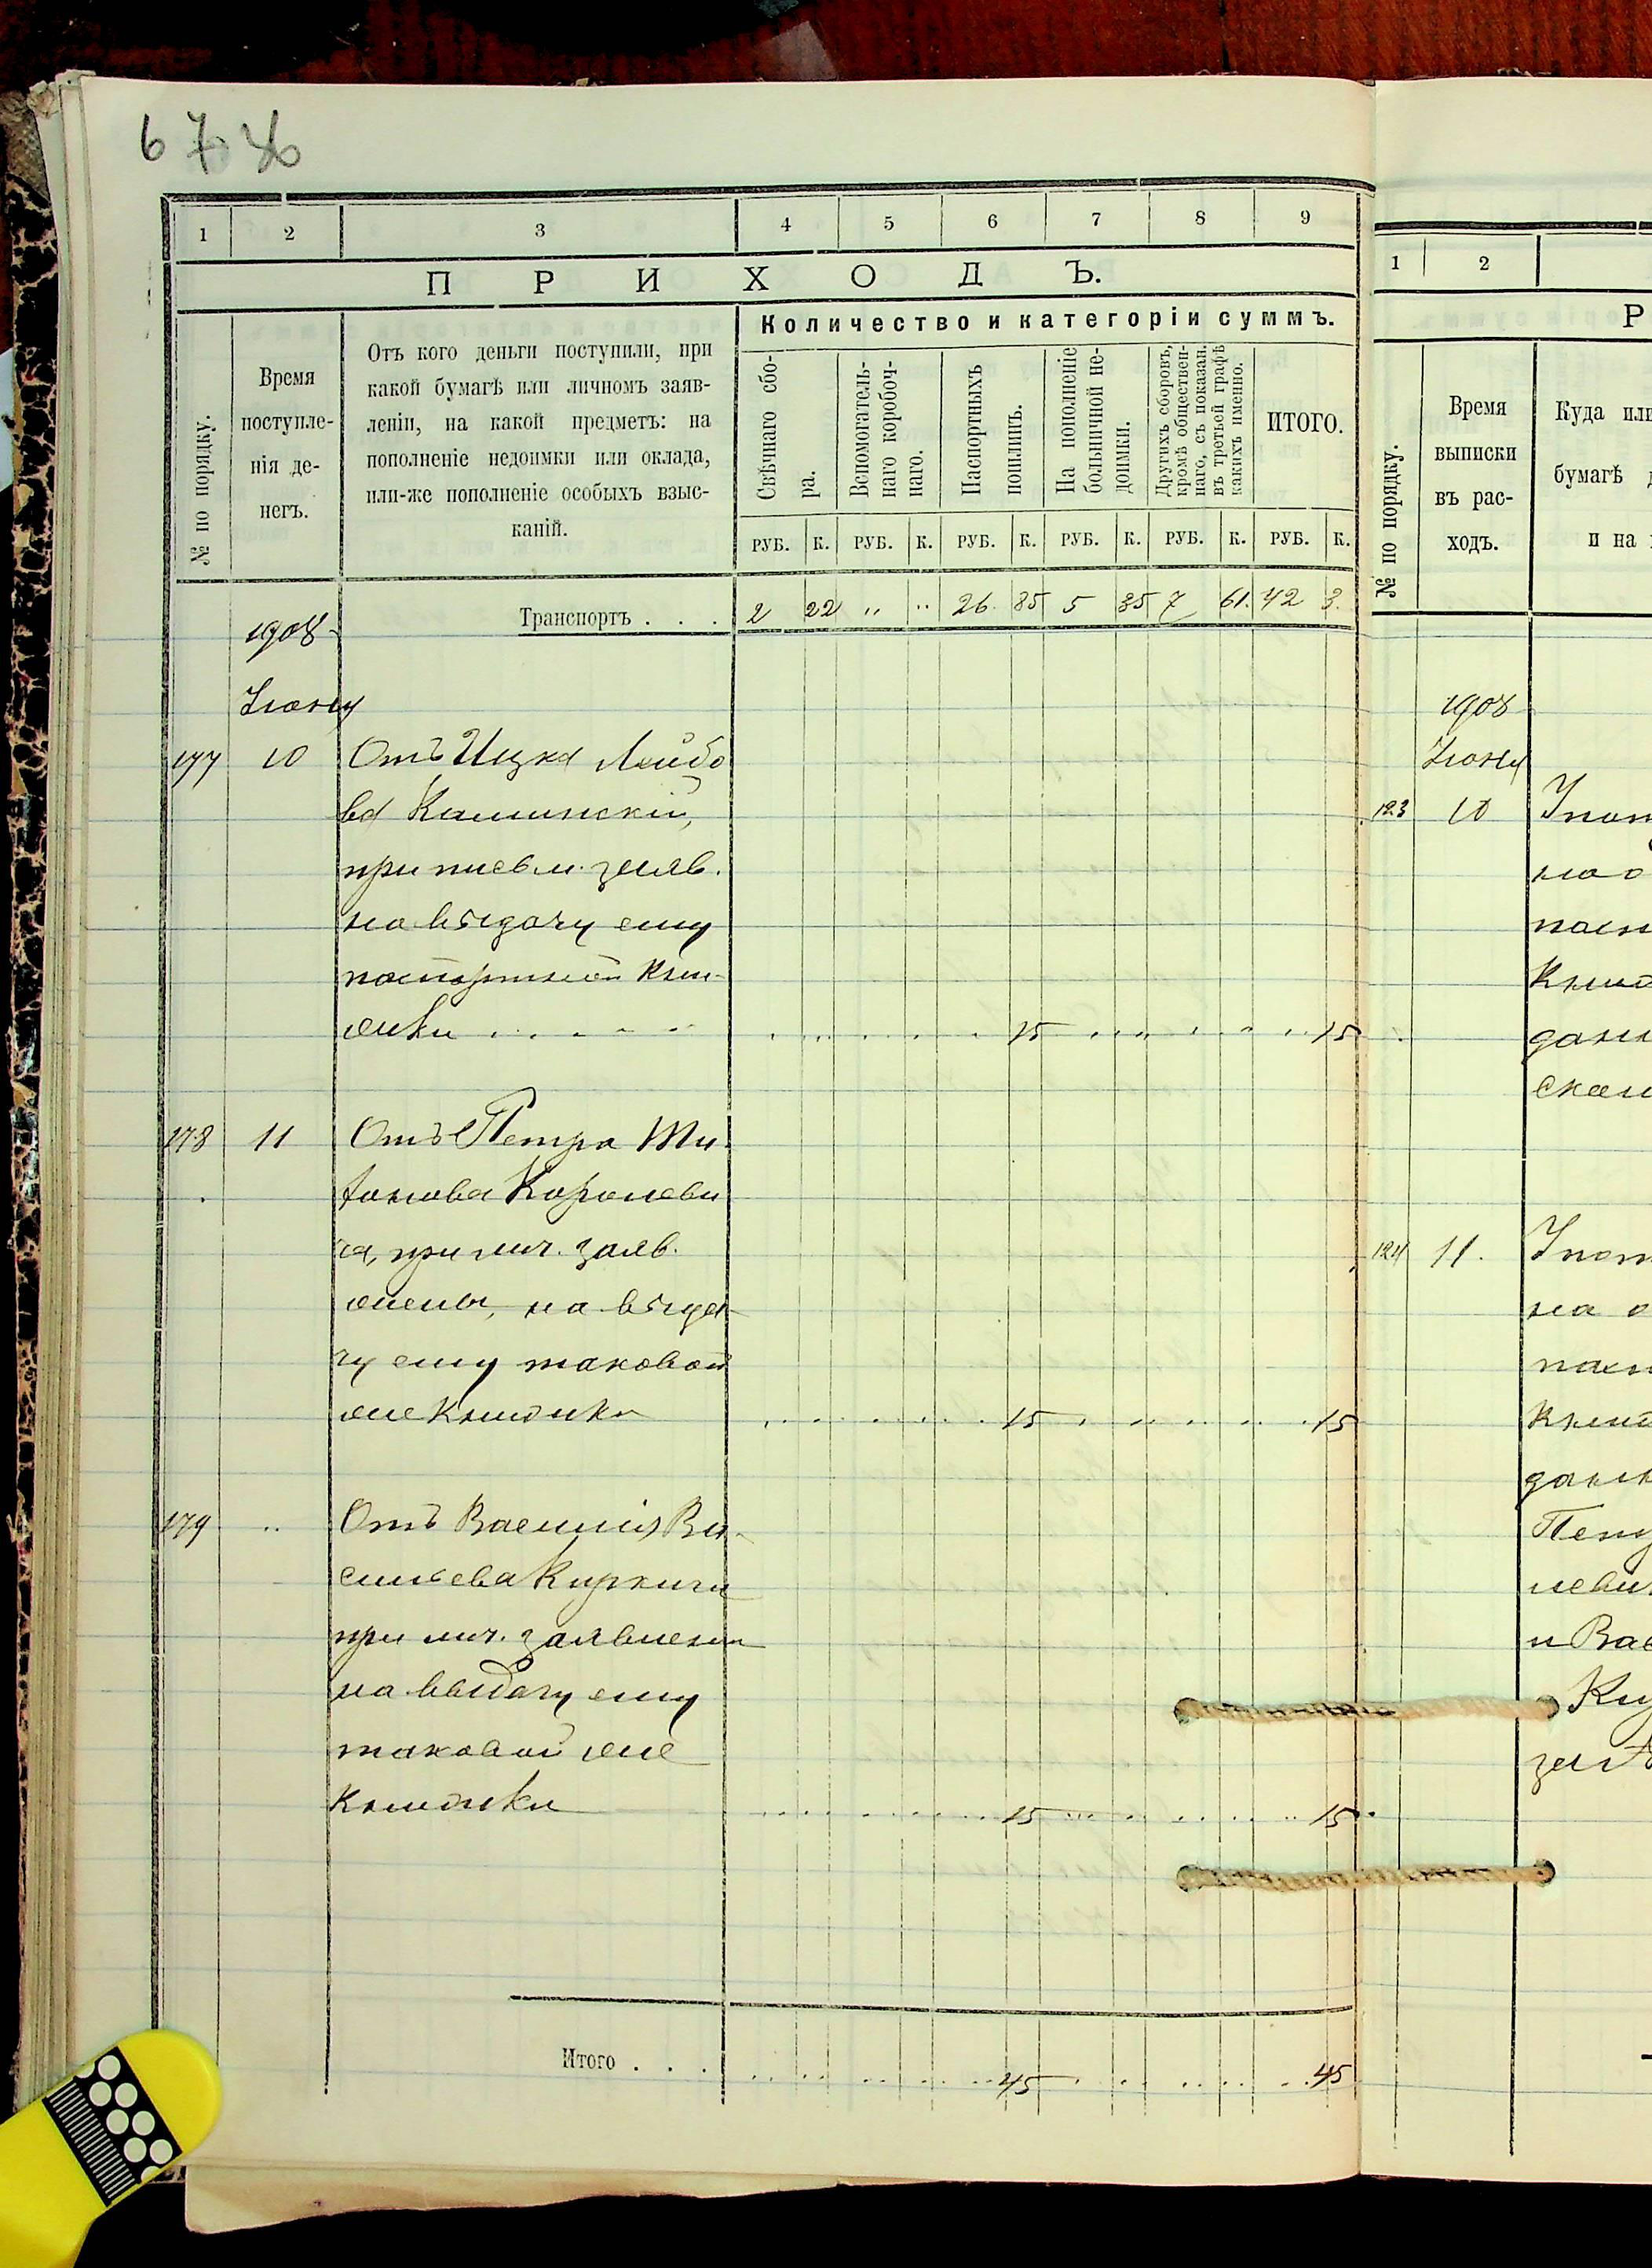 6 7
1 2 3 4 5 6 7 8 9
ПРИХОДЪ.
№ по порядку.
Время
поступле-
нія де-
негъ.
Отъ кого деньги поступили, при
какой бумагѣ или личномъ заяв-
леніи, на какой предметъ: на
пополненіе недоимки или оклада,
или-же пополненіе особыхъ взыс-
каній.
Количество и категоріи суммъ.
Свѣчнаго сбо-
ра.
Вспомогатель-
наго коробоч-
наго.
Паспортныхъ
пошлинъ.
На пополненіе
больничной не-
доимки.
Другихъ сборовъ,
кромѣ обществен-
наго, съ показан.
въ третьей графѣ
какихъ именно.
ИТОГО.
РУБ. К. РУБ. К. РУБ. К. РУБ. К. РУБ. К. РУБ. К.
Транспортъ . . . 2 22 " " 26. 85 5 35 7 61. 42 3.
1908
Іюня
177 10 Отъ Ицка Лейбо
ва Каминскій,
при письм. заяв.
на выдачу ему
паспортной кни-
жки 15 15
178 11 Отъ Петра
Королеви
ча, при лич. заяв.
на выда-
чу ему таковой
же книжки 15 15
179 " Отъ Василія Ва-
сильева
при лич. заявленіи
на выдачу ему
таковой же
книжки 15 15
Итого . . . 45 45
1 2
Р
№ по порядку.
Время
выписки
въ рас-
ходъ.
Куда или
бумагѣ
и на
1908
Іюня
123 10
124 11.
на о